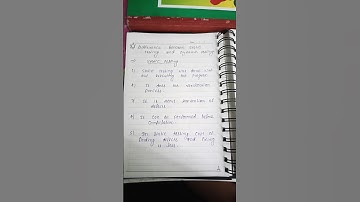 Difference between static
testing and dynamic testing
Static testing
1) Static testing was done with
out executing the program
2) It does the verification
process.
3) It is about prevention of
defects
4) It can be performed before
compilation.
5) In static testing cost of
finding defects and fixing
is less.